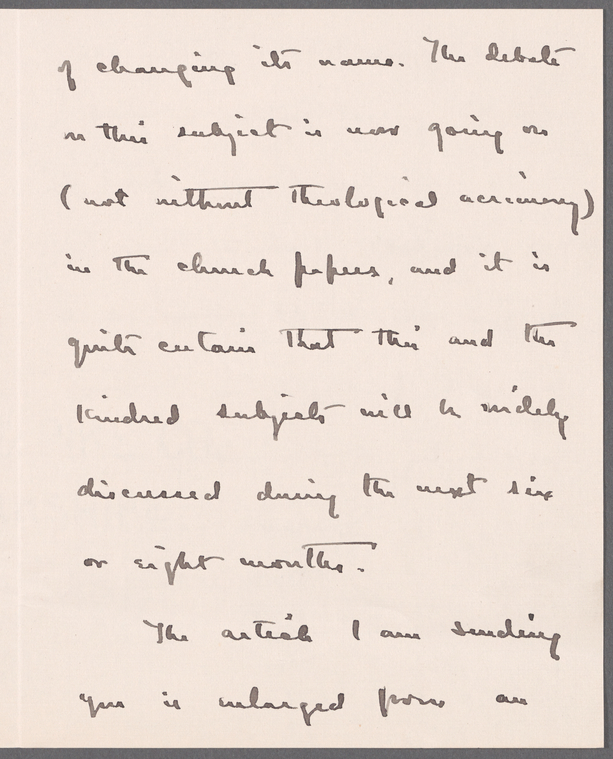 of changing its name. The debate
on this subject is now going on
(not without theological acrimony)
in the church papers, and it is
quite certain that this and the
kindred subjects will be widely
discussed during the next six
or eight months.
The article I am sending
you is enlarged from an